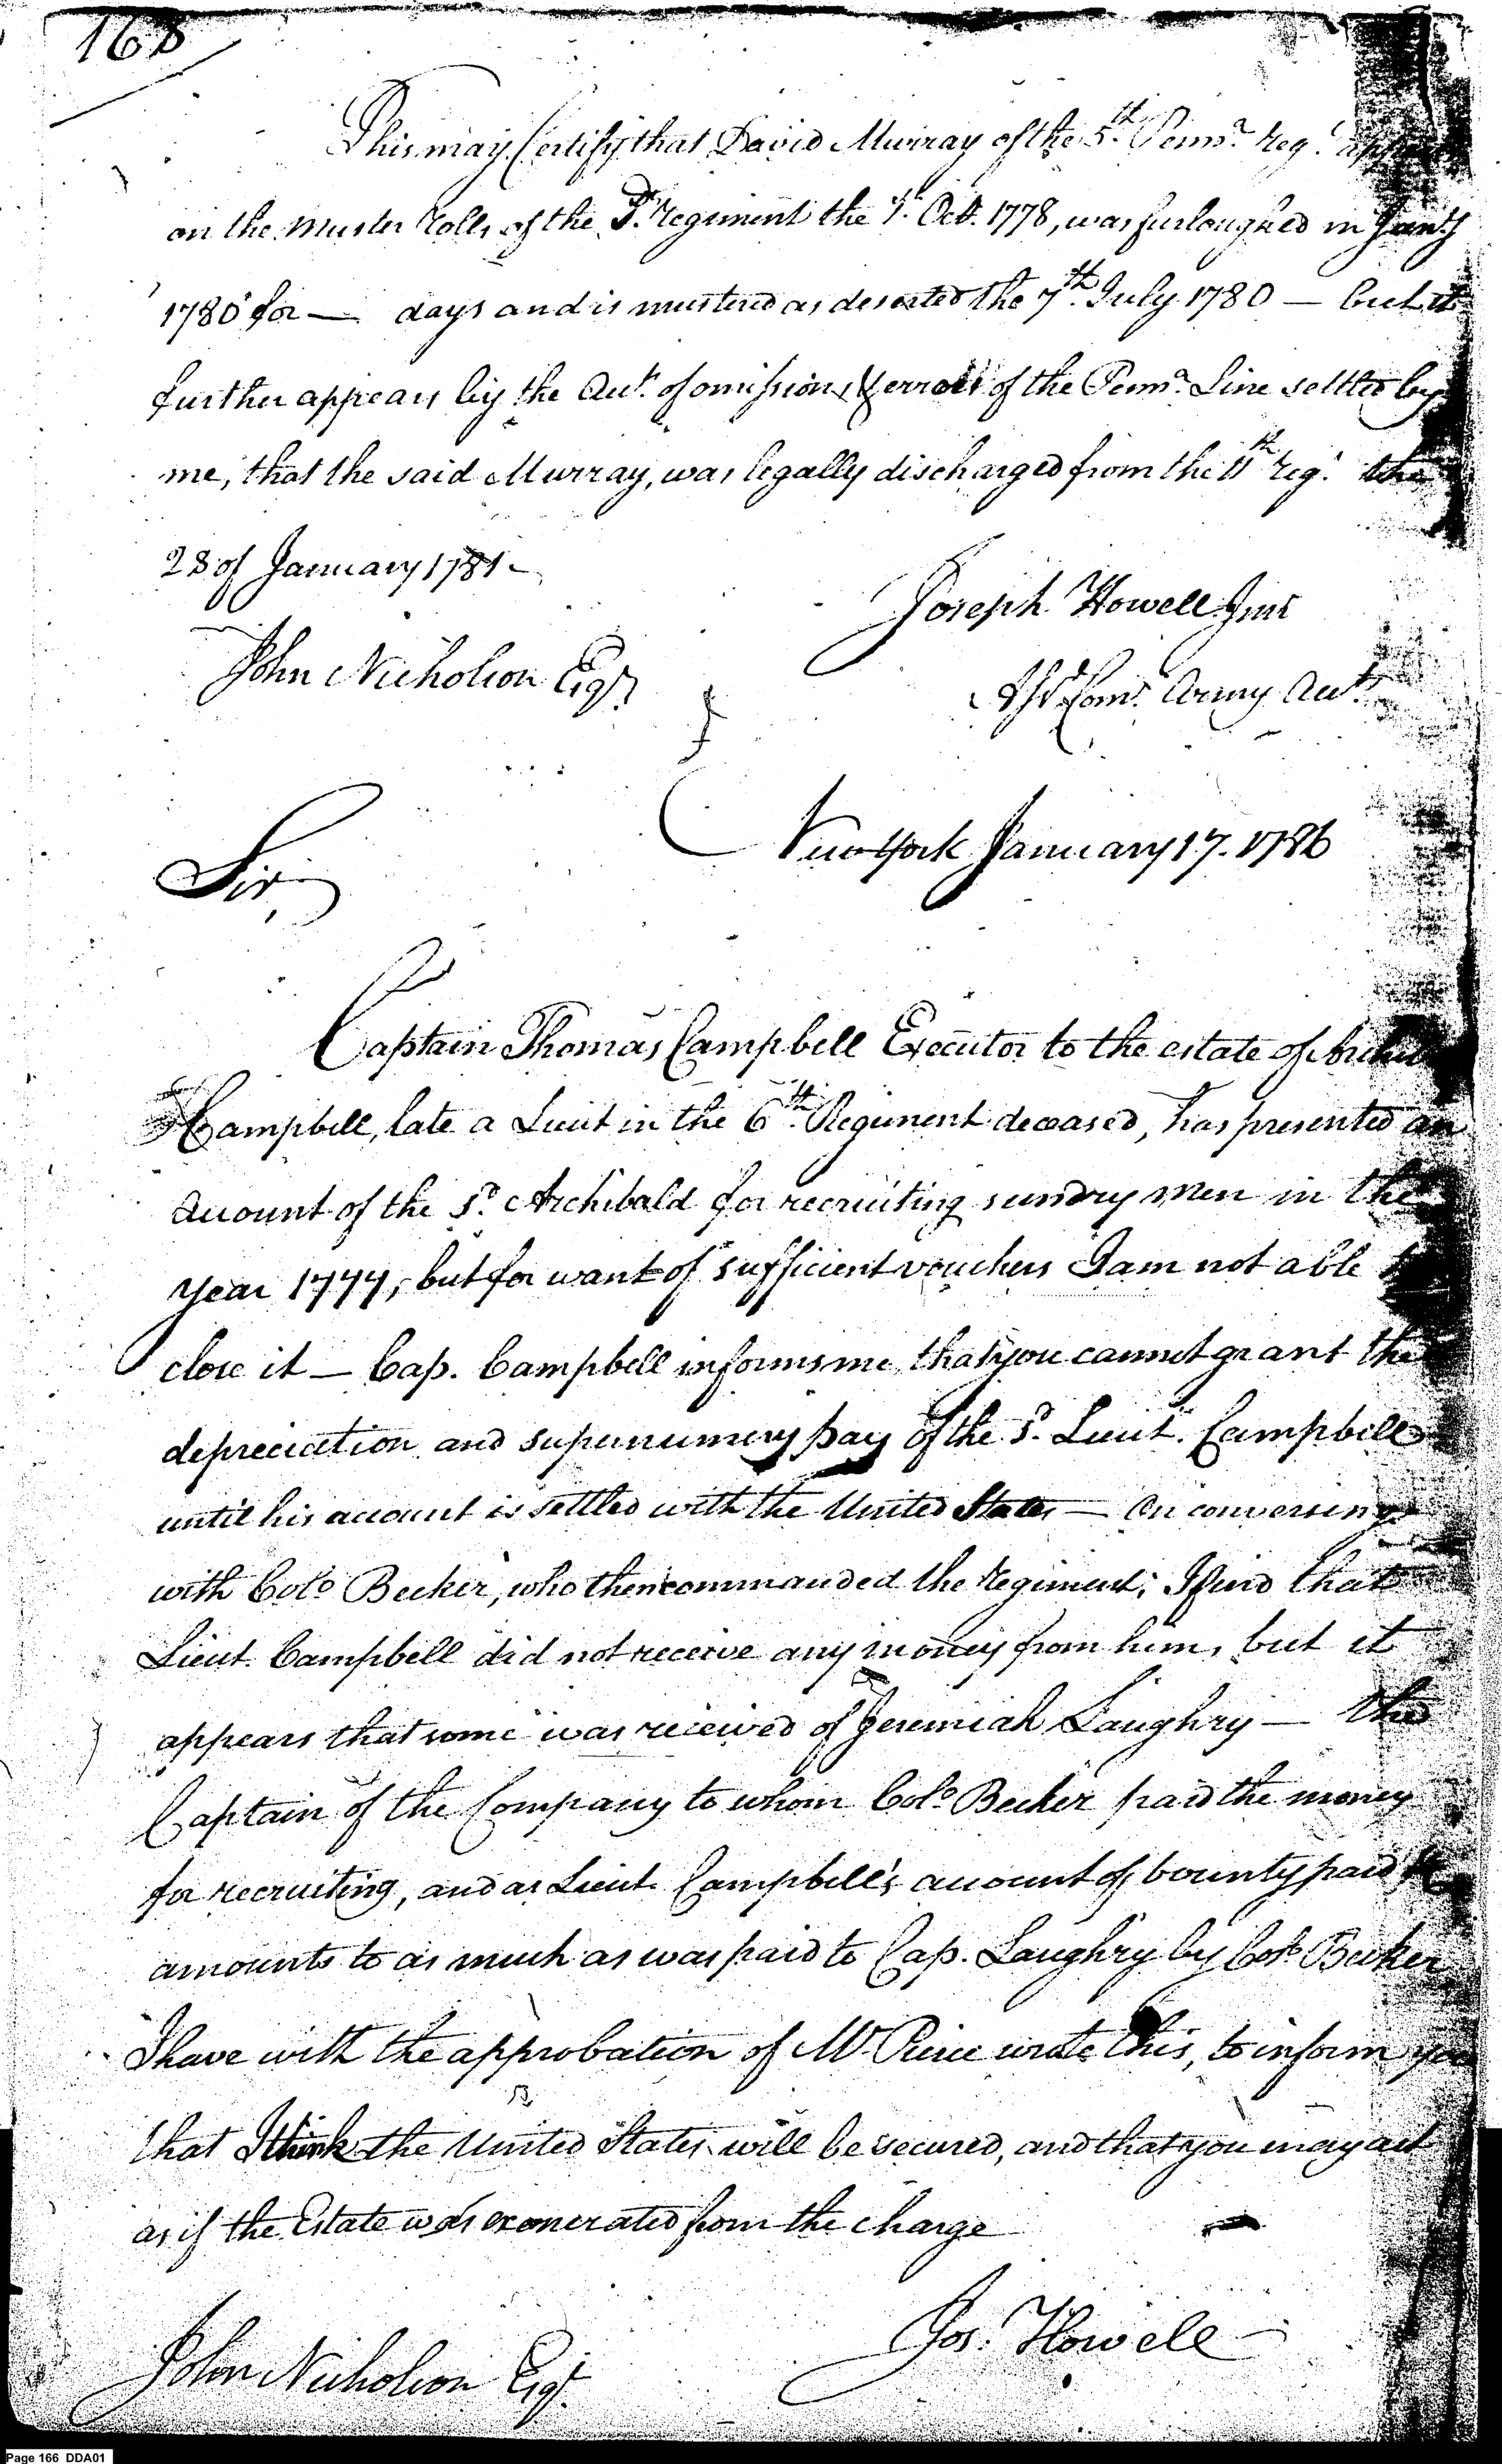 168
This may Certify that David Murray of the 5th. Penna. Regt.
on the Muster Rolls of the Regiment the 1t. Octr. 1778, was furloughed in Jany
1780 for — days and is mustered as deserted the 7th. July 1780 — but it
further appears by the Acct. of omissions & errors of the Penna. Line settled by
me, that the said Murray, was legally discharged from the 11th Regt. the
28 of January 1781 —
Joseph Howell Junr
John Nicholson Esqr.
Asst Comr. Army Acts.
New York January 17. 1786
Sir
Captain Thomas Campbell Executor to the estate of
Campbell, late a Lieut in the 6th. Regiment deceased, has presented an
account of the sd. Archibald for recruiting sundry men in the
year 1777, but for want of sufficient vouchers I am not able
close it — Cap. Campbell informs me, that you cannot grant the
depreciation and supernumery pay of the sd. Lieut. Campbell
until his account is settled with the United States — On conversing
with Colo. Becker, who then commanded the Regiment; I find that
Lieut. Campbell did not receive any money from him, but it
appears that some was received of Jeremiah Laughry — the
Captain of the Company to whom Colo. Becker paid the money
for recruiting, and as Lieut. Campbell's account of bounty paid
amounts to as much as was paid to Cap. Laughry by Colo. Becker
I have with the approbation of Mr. Pierce wrote this, to inform you
that I think the United States will be secured, and that you may act
as if the Estate was exonerated from the charge
Jos. Howell
John Nicholson Esqr.
Page 166 DDA01